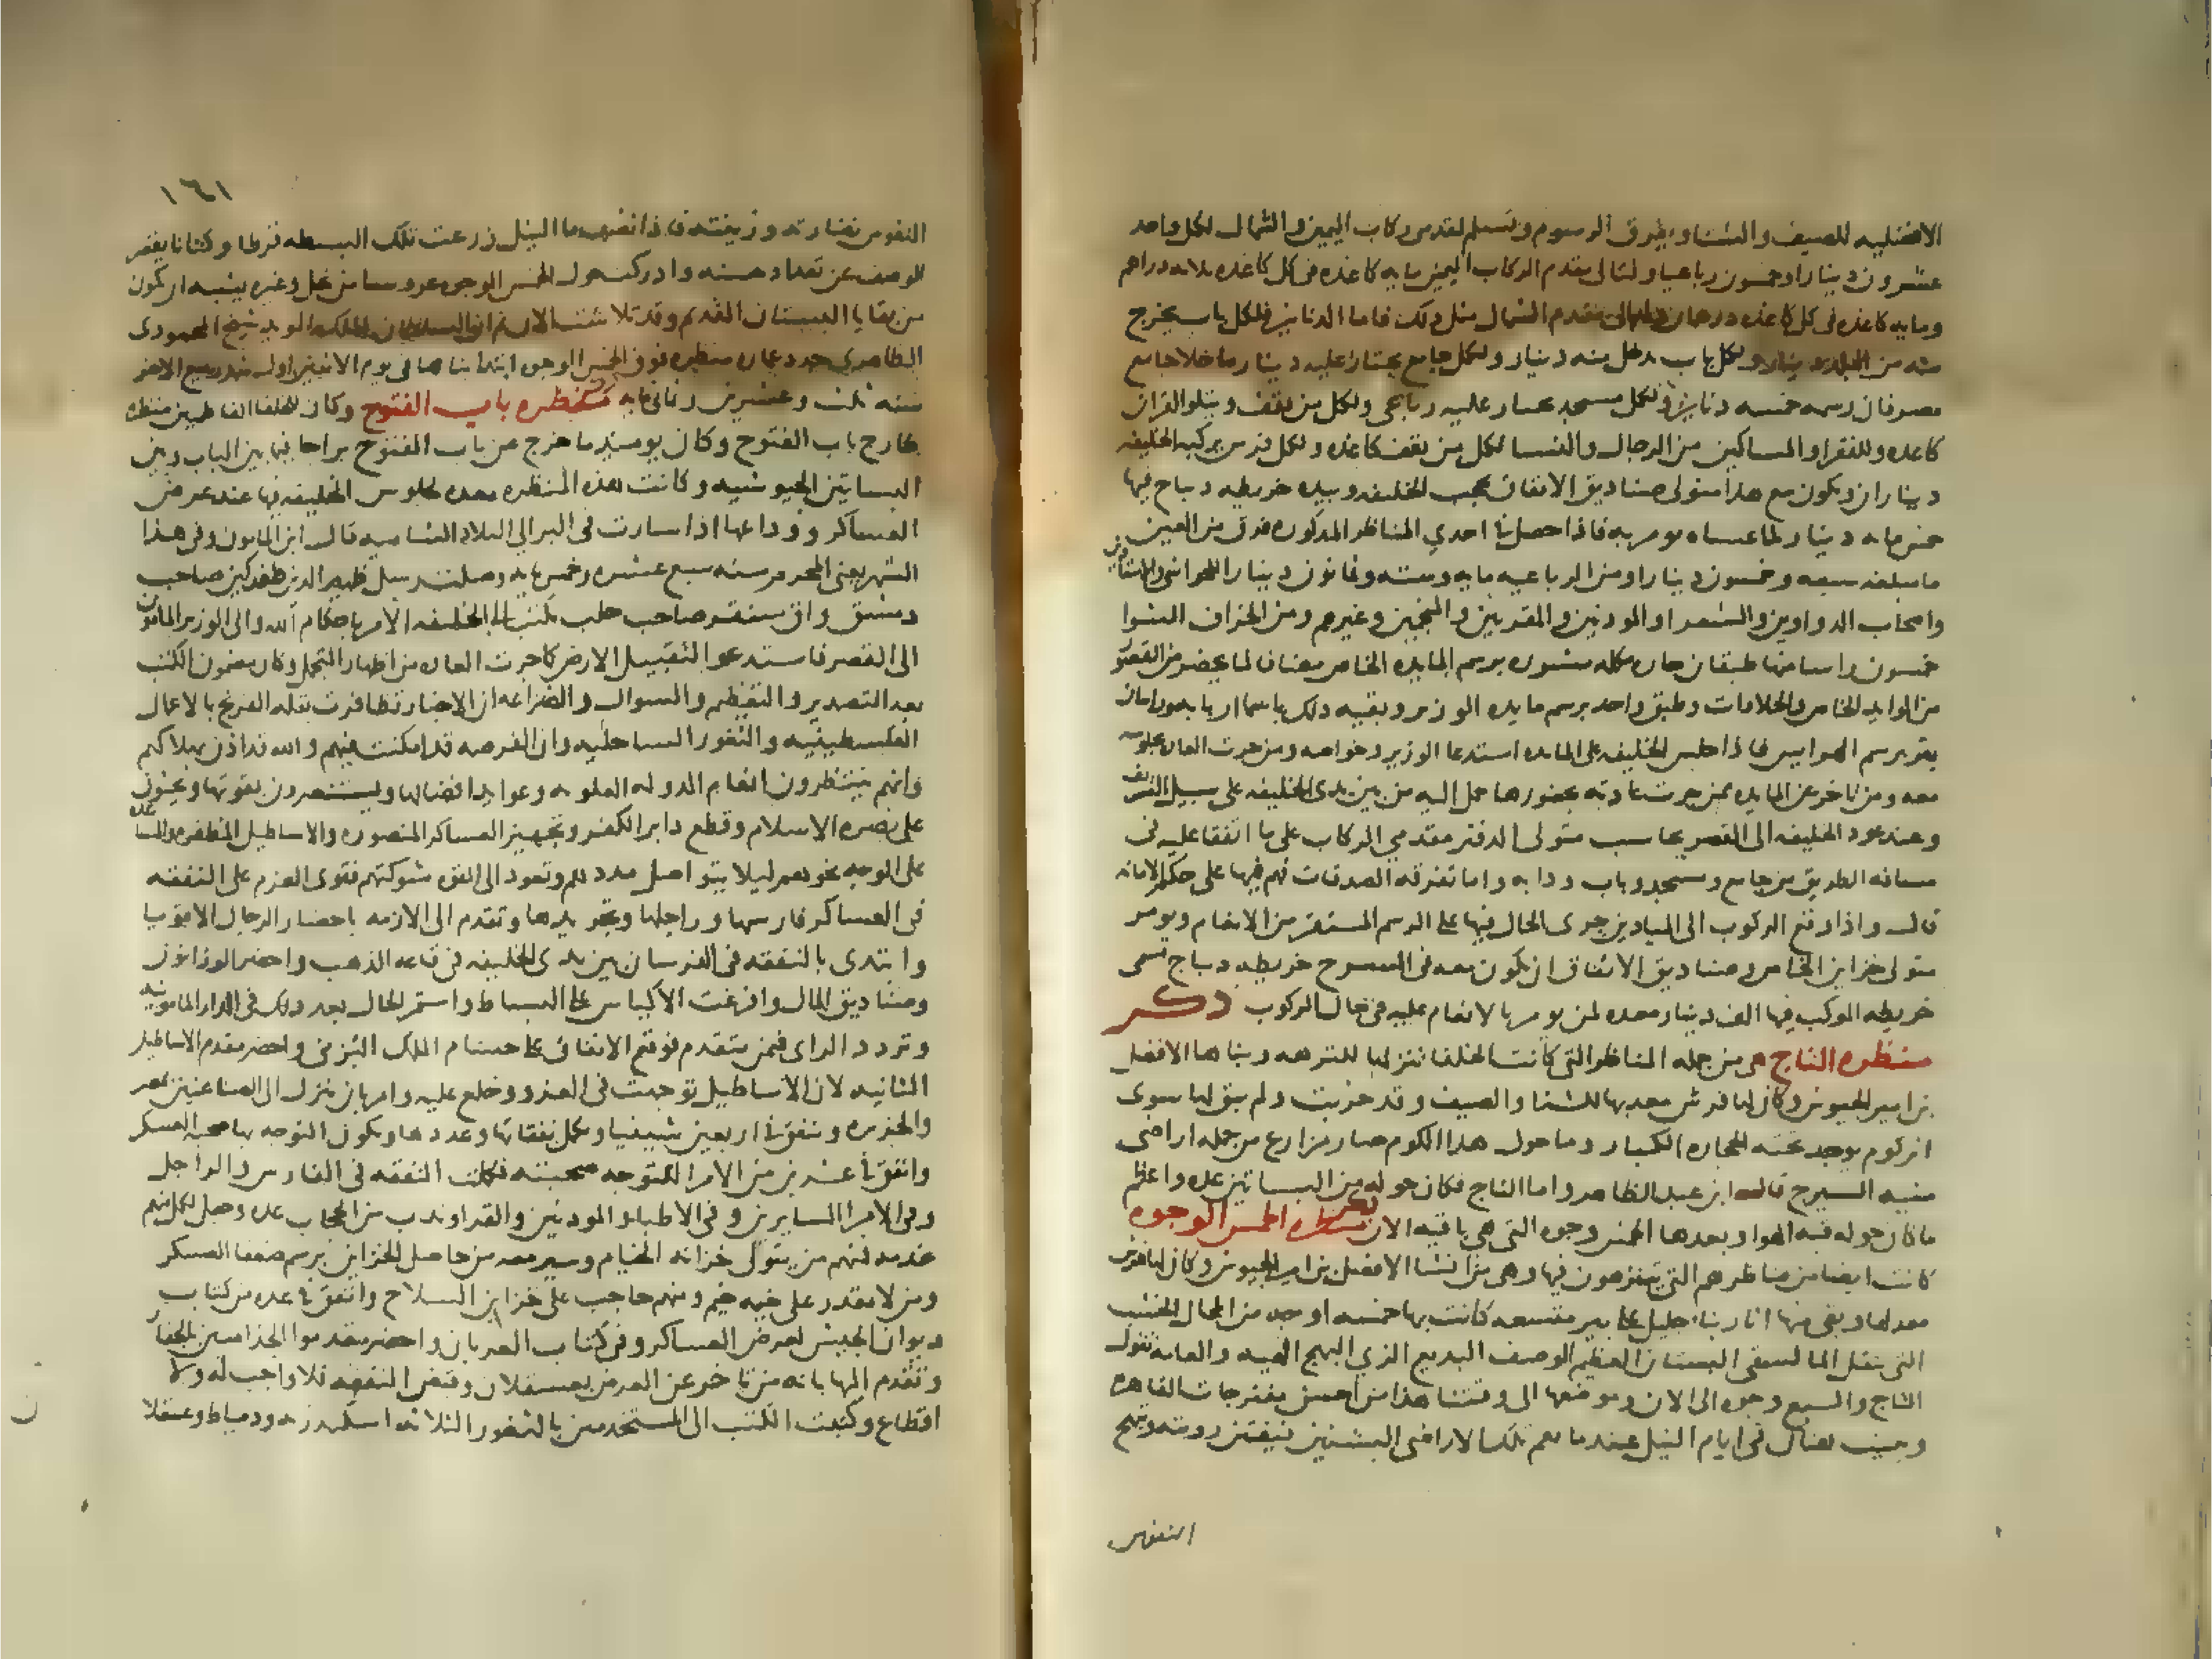 الافضليه للصيف والشتا ويفرق الرسوم وتسلم لمقدمى ركاب اليمين والشمال لكل واحد
عشرون دينارا وخمسون رباعيا ولتالى مقدم الركاب اليمين مايه كاغده فى كل كاغده ثلاثه دراهم
ومايه كاغده فى كل كاغده درهمان ولتالى مقدم الشمال مثل ذلك فاما الدنانير فلكل باب يخرج
منه من البلد دينار ولكل باب يدخل منه دينار ولكل جامع يجتاز عليه دينار ما خلا جامع
مصر فان رسمه خمسه دنانير ولكل مسجد يجتاز عليه رباعى ولكل من يقف ويتلو القران
كاغده وللفقرا والمساكين من الرجال والنسا لكل من يقف كاغده ولكل فرس يركبه الخليفه
ديناران ويكون مع هذا متولى صناديق الانفاق يحجب الخليفه وبيده خريطه ديباج فيها
خمس مايه دينار لما عساه يومر به فاذا حصل فى احدى المناظر المذكوره فرق من العين
ما مبلغه سبعه وخمسون دينارا ومن الرباعيه مايه وسته وثمانون دينارا للحواشى والاستاذين
واصحاب الدواوين والشعرا والموذنين والمقريين والمنجمين وغيرهم ومن الخراف الشوا
خمسون راسا منها طبقان حاره مكمله مشوره برسم المايده الخاص مضافا لما يحضر من القصور
من الموايد الخاص والحلاوات وطبق واحد برسم مايده الوزير وبقيه ذلك باسما اربابه وراسان
بقر برسم الهرايس فاذا جلس الخليفه على المايده استدعا الوزير وخواصه ومن جرت العاده بجلوسه
معه ومن تاخر عن المايده ممن جرت عادته بحضورها حمل اليه من بين يدى الخليفه على سبيل التشريف
وعند عود الخليفه الى القصر يحاسب متولى الدفتر مقدمى الركاب على ما اتفقا عليه فى
مسافه الطريق من جامع ومسجد وباب ودابه واما تفرقه الصدقات فهم فيها على حكم الامانه
قال واذا وقع الركوب الى الميادين جرى الحال فيها على الرسم المستقر من الانعام ويومر
متولى خزاين الخاص وصناديق الانفاق ان يكون معه فى السرج خريطه ديباج تسمى
خريطه الموكب فيها الف دينار معده لمن يومر بالانعام عليه فى حال الركوب ذكر
منظره التاج هى من جمله المناظر التى كانت الخلفا تنزلها للنزهه وبناها الافضل
بن امير الجيوش وكان لها فرش معد بها للشتا والصيف وقد خربت ولم يبق لها سوى
اثر كوم يوجد تحته الحجاره الكبار وما حول هذا الكوم صار مزارع من جمله اراضى
منيه السيرج قال ابن عبد الظاهر واما التاج فكان حوله من البساتين عده واعظم
ما كان حوله قبه الهوا وبعدها الخمس وجوه التى هى باقيه الان ذكر منظره الخمس الوجوه
كانت ايضا من مناظرهم التى يتنزهون فيها وهى من انشا الافضل بن امير الجيوش وكان لها فرش
معد لها وبقى منها اثار بنا جليل على بير متسعه كانت بها خمسه اوجه من المحال الخشب
التى تنقل الما لسقى البستان العظيم الوصف البديع الزى البهج الهيه والعامه تقول
التاج والسبع وجوه الى الان وموضعها الى وقتنا هذا من احسن مفترجات القاهره
وينبت هناك فى ايام النيل عندما يعم تلك الاراضى البشنين فتفتن رويته وتبهج
النفوس
١٦١
النفوس نضارته وزينته فاذا نضب ما النيل زرعت تلك البسطه قرطا وكتانا يقصر
الوصف عن تعداد حسنه وادركت حول الخمس الوجوه غروسا من نخل وغيره يشبه ان تكون
من بقايا البستان القديم وقد تلاشت الان ثم ان السلطان الملك المويد شيخ المحمودى
الظاهرى جدد عماره منظره فوق الخمس الوجوه ابتدا بناها فى يوم الاثنين اول شهر ربيع الاخر
سنه ثلث وعشرين وثمانى مايه ذكر منظره باب الفتوح وكان للخلفا الفاطميين منظره
خارج باب الفتوح وكان يوميذ ما خرج عن باب الفتوح براحا فيما بين الباب وبين
البساتين الجيوشيه وكانت هذه المنظره معده لجلوس الخليفه فيها عند عرض
العساكر ووداعها اذا سارت فى البر الى البلاد الشاميه قال ابن المامون وفى هذا
الشهر يعنى المحرم سنه سبع عشره وخمس مايه وصلت رسل ظهير الدين طغدكين صاحب
دمشق واق سنقر صاحب حلب بكتب الى الخليفه الامر باحكام الله والى الوزير المامون
الى القصر فاستدعوا لتقبيل الارض كما جرت العاده من اظهار التجمل وكان مضمون الكتب
بعد التصدير والتعظيم والسوال والضراعه ان الاخبار تظافرت بقله الفرنج بالاعمال
الفلسطينيه والثغور الساحليه وان الفرصه قد امكنت فيهم والله قد اذن بهلاكهم
وانهم ينتظرون انعام الدوله العلويه وعوايد افضالها ويستنصرون بقوتها ويحثون
على نصره الاسلام وقطع دابر الكفر وتجهيز العساكر المنصوره والاساطيل المظفره والمساعده
على التوجه نحوهم ليلا يتواصل مددهم وتعود الى القوه شوكتهم فقوى العزم على النفقه
فى العساكر فارسها وراجلها وتجريدها وتقدم الى الازمه باحضار الرجال الاقويا
وابتدى بالنفقه فى الفرسان بين يدى الخليفه فى قاعه الذهب واحضر الوزانون
وصناديق المال وافرغت الاكياس على البساط واستمر الحال بعد ذلك فى الدار المامونيه
وتردد الراى فيمن يتقدم فوقع الاتفاق على حسام الملك البزنى واحضر مقدم الاساطيل
الثانيه لان الاساطيل توجهت فى الغزو وخلع عليه وامر بان ينزل الى الصناعتين بمصر
والجزيره وينفق فى اربعين شينيا ويكمل نفقاتها وعددها ويكون التوجه بها صحبه العسكر
وانفق فى عشرين من الامرا للتوجه صحبته فكملت النفقه فى الفارس والراجل
وفى الامرا السايرين وفى الاطبا والموذنين والقرا وندب من الحجاب عده وجعل لكل منهم
خدمه فمنهم من يتولى خزانه الخيام وسير معه من حاصل الخزاين برسم ضعفا العسكر
ومن لا يقدر على خيمه خيم ومنهم حاجب على خزاين السلاح وانفق فى عده من كتاب
ديوان الجيش لعرض العساكر وفى كتاب العربان واحضر مقدموا الحراسين بالحفار
وتقدم اليها بانه من تاخر عن العرض بعسقلان وقبض النفقه فلا واجب له ولا
اقطاع وكتبت الكتب الى المستخدمين بالثغور الثلاثه اسكندريه ودمياط وعسقلا